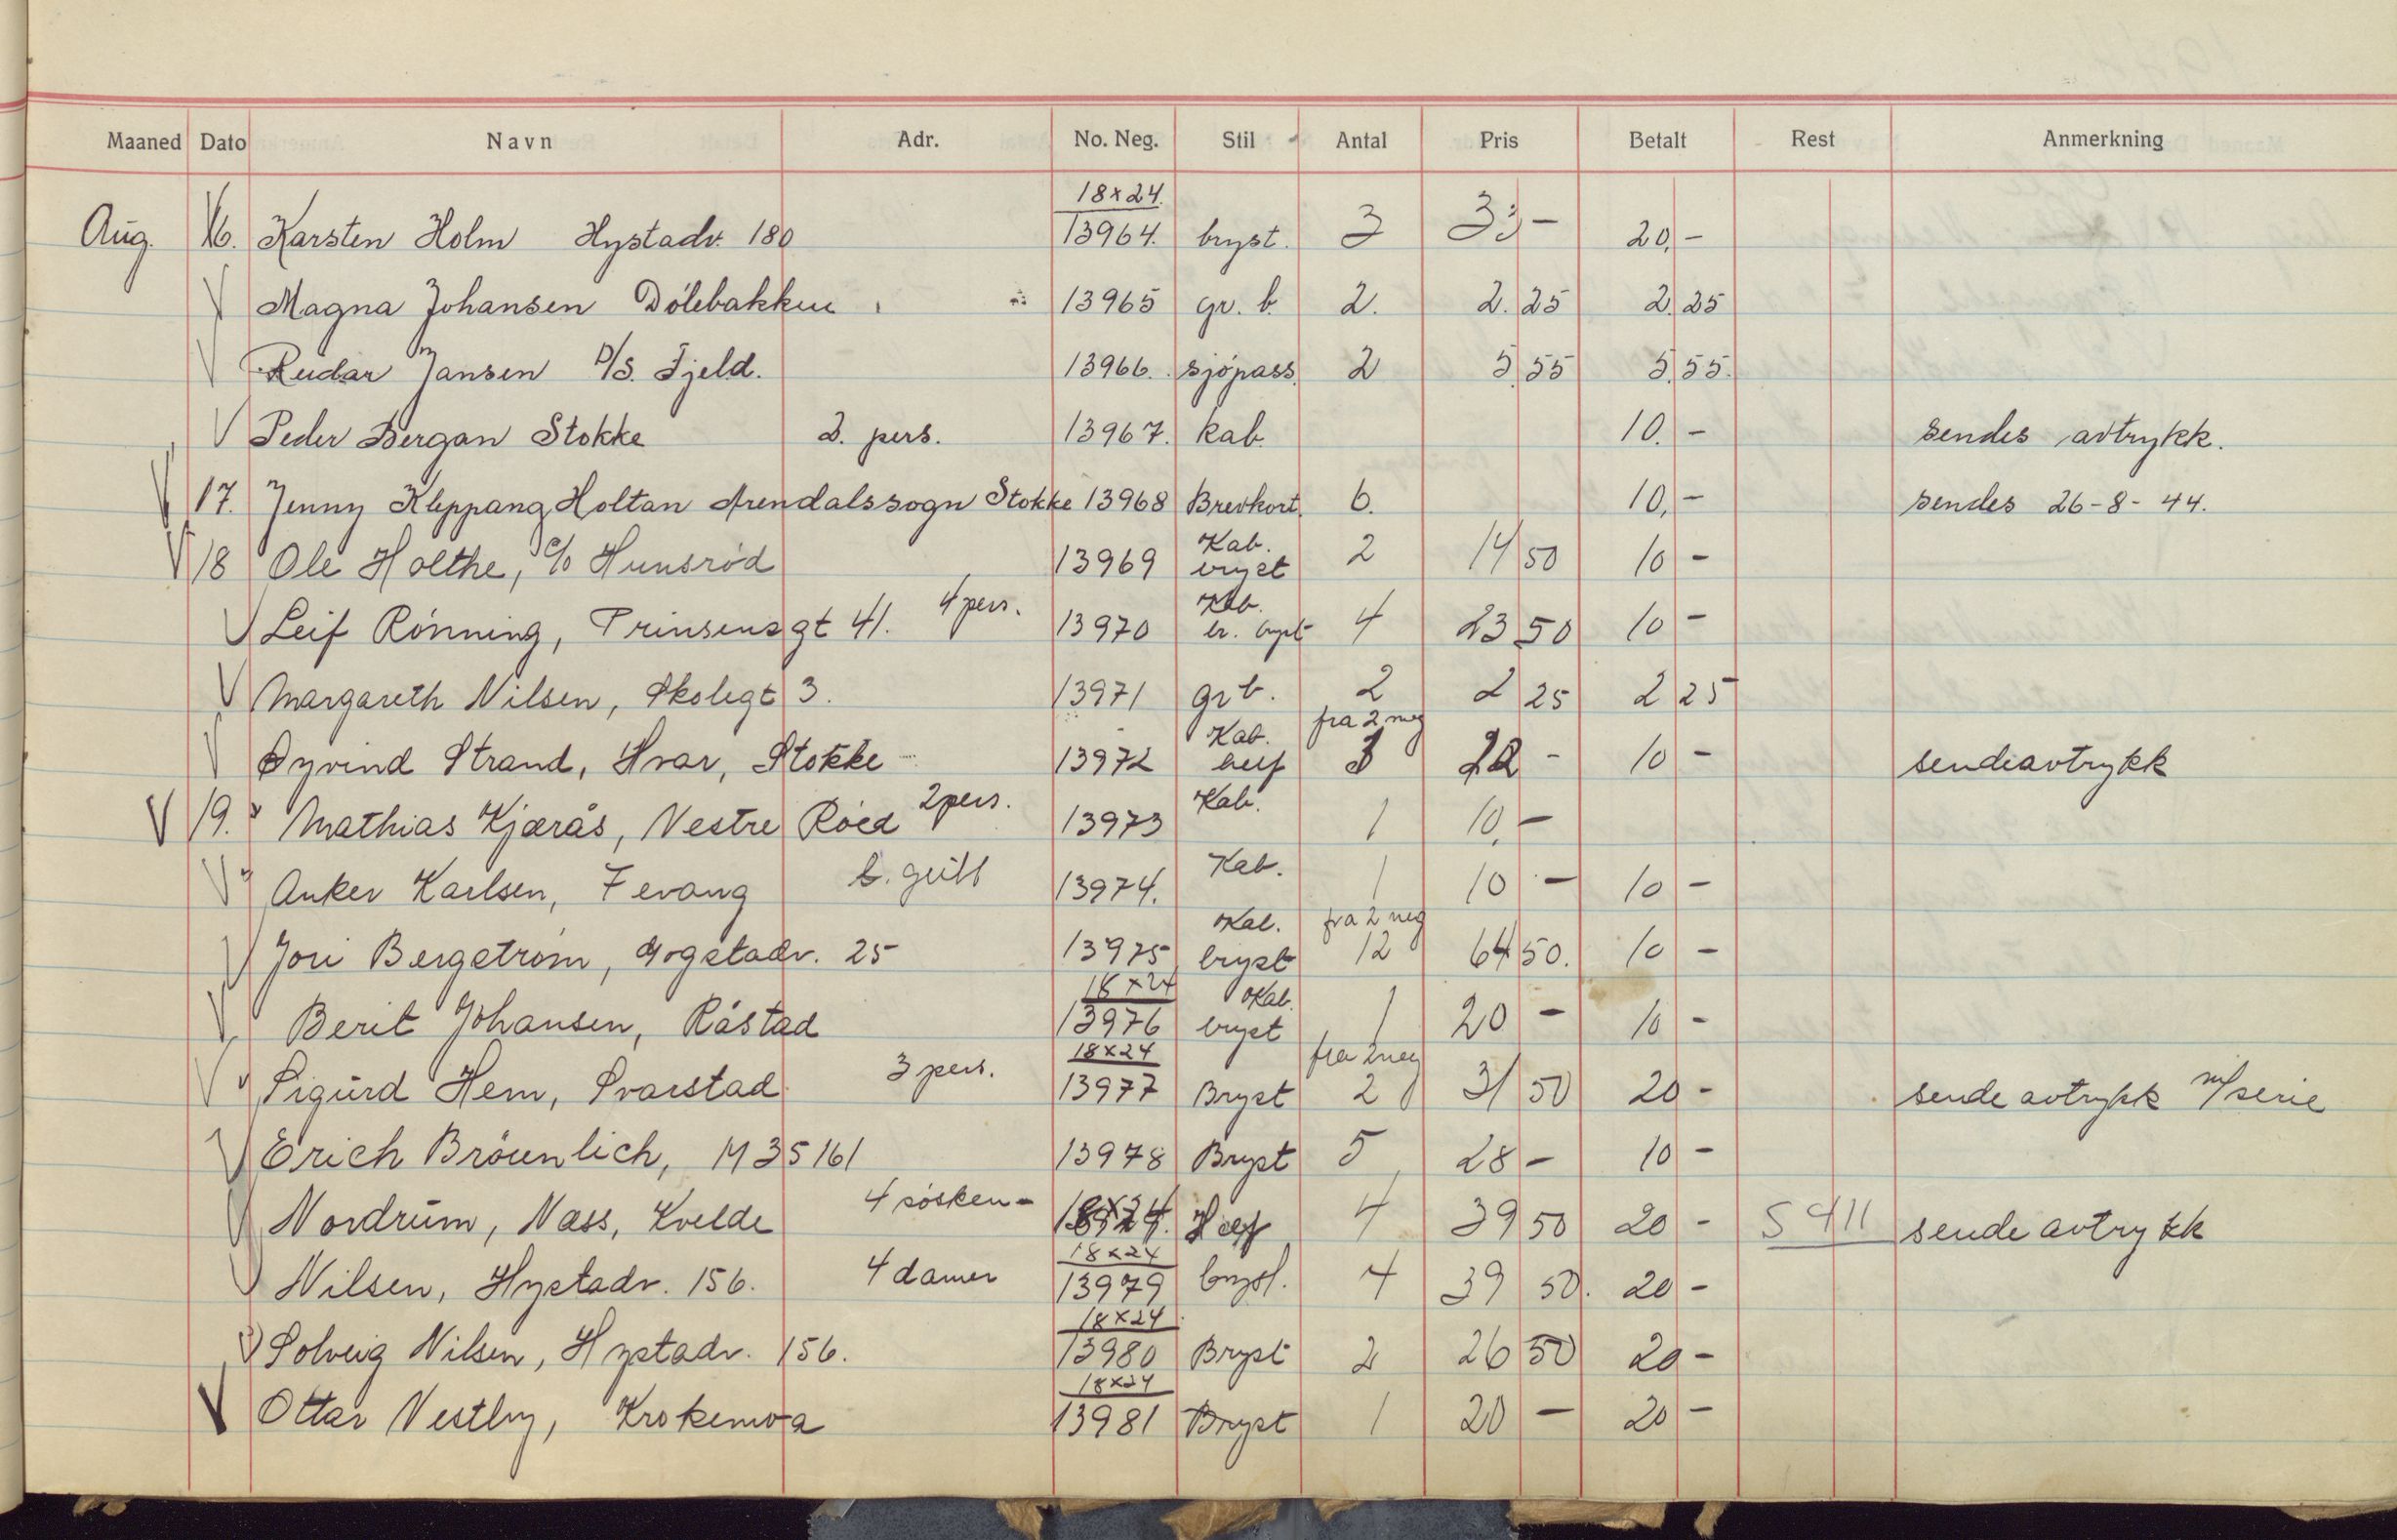 Maaned Dato Navn Adr. No. Neg. Stil Antal Pris Betalt Rest Anmerkning
18x24.
Aug. 16. Karsten Holm Hystadv. 180 13964. bryst. 3 33 - 20,-
Magna Johansen Dölebakken 13965 gr. b. 2. 2.25 2.25
Rudar Jansen D/S. Fjeld. 13966. sjöpass. 2 5,55 5,55.
Peder Bergan Stokke 2. pers. 13967. kab. 10.- sendes avtrykk.
17. Jenny Kleppang Holtan Arendalssogn Stokke 13968 Brevkort. 6. 10,- sendes 26-8-44.
Kab.
18 Ole Holthe, c/o Hunsröd 13969 bryst 2 14 50 10 -
4 pers. Kab.
Leif Rönning, Prinsensgt 41. 13970 br. bryst 4 23 50 10 -
Margareth Nilsen, Skolegt 3. 13971 gr b. 2 2 25 2 25
Kab. fra 2 neg
Øyvind Strand, Hvar, Stokke 13972 helf 3 22 - 10 - sende avtrykk
2 pers. Kab.
19. " Mathias Kjærås, Vestre Röed 13973 1 10,-
" Anker Karlsen, Fevang b. gutt 13974. Kab. 1 10 - 10 -
Kab. fra 2 neg
Jori Bergström, Gogstadv. 25 13975 bryst 12 64 50. 10 -
18x24 Kab.
Berit Johansen, Råstad 13976 bryst 1 20 - 10 -
18x24 fra 2 neg
" Sigurd Hem, Svarstad 3 pers. 13977 Bryst 2 31 50 20 - sende avtrykk m/serie
Erich Bröunlich, M 35161 13978 Bryst 5 28 - 10 -
Nordrum, Næss, Kvelde 4 søsken - 18x24 Helf 4 39 50 20 - sende avtrykk
18x24
Nilsen, Hystadv. 156. 4 damer 13979 bryst. 4 39 50. 20 -
18x24
Solveig Nilsen, Hystadv. 156. 13980 Bryst 2 26 50 20 -
18x24
Ottar Vestby, Krokemoa 13981 Bryst 1 20 - 20 -